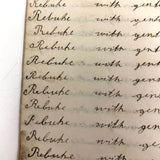 Rebuke with gent
Rebuke with gent
Rebuke with gent
Rebuke with gent
Rebuke with gent
Rebuke with gen
Rebuke with gen
Rebuke with gen
Rebuke with gen
Rebuke with gen
Rebuke with gen